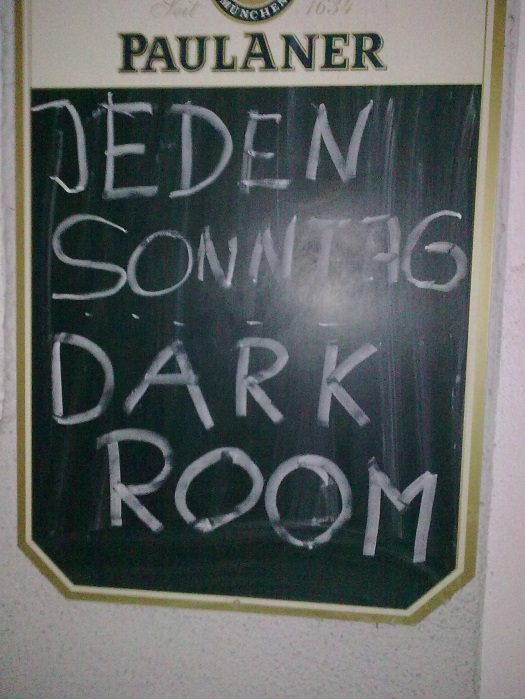 MÜNCHEN
Seit 1634
PAULANER
JEDEN
SONNTAG
DARK
ROOM